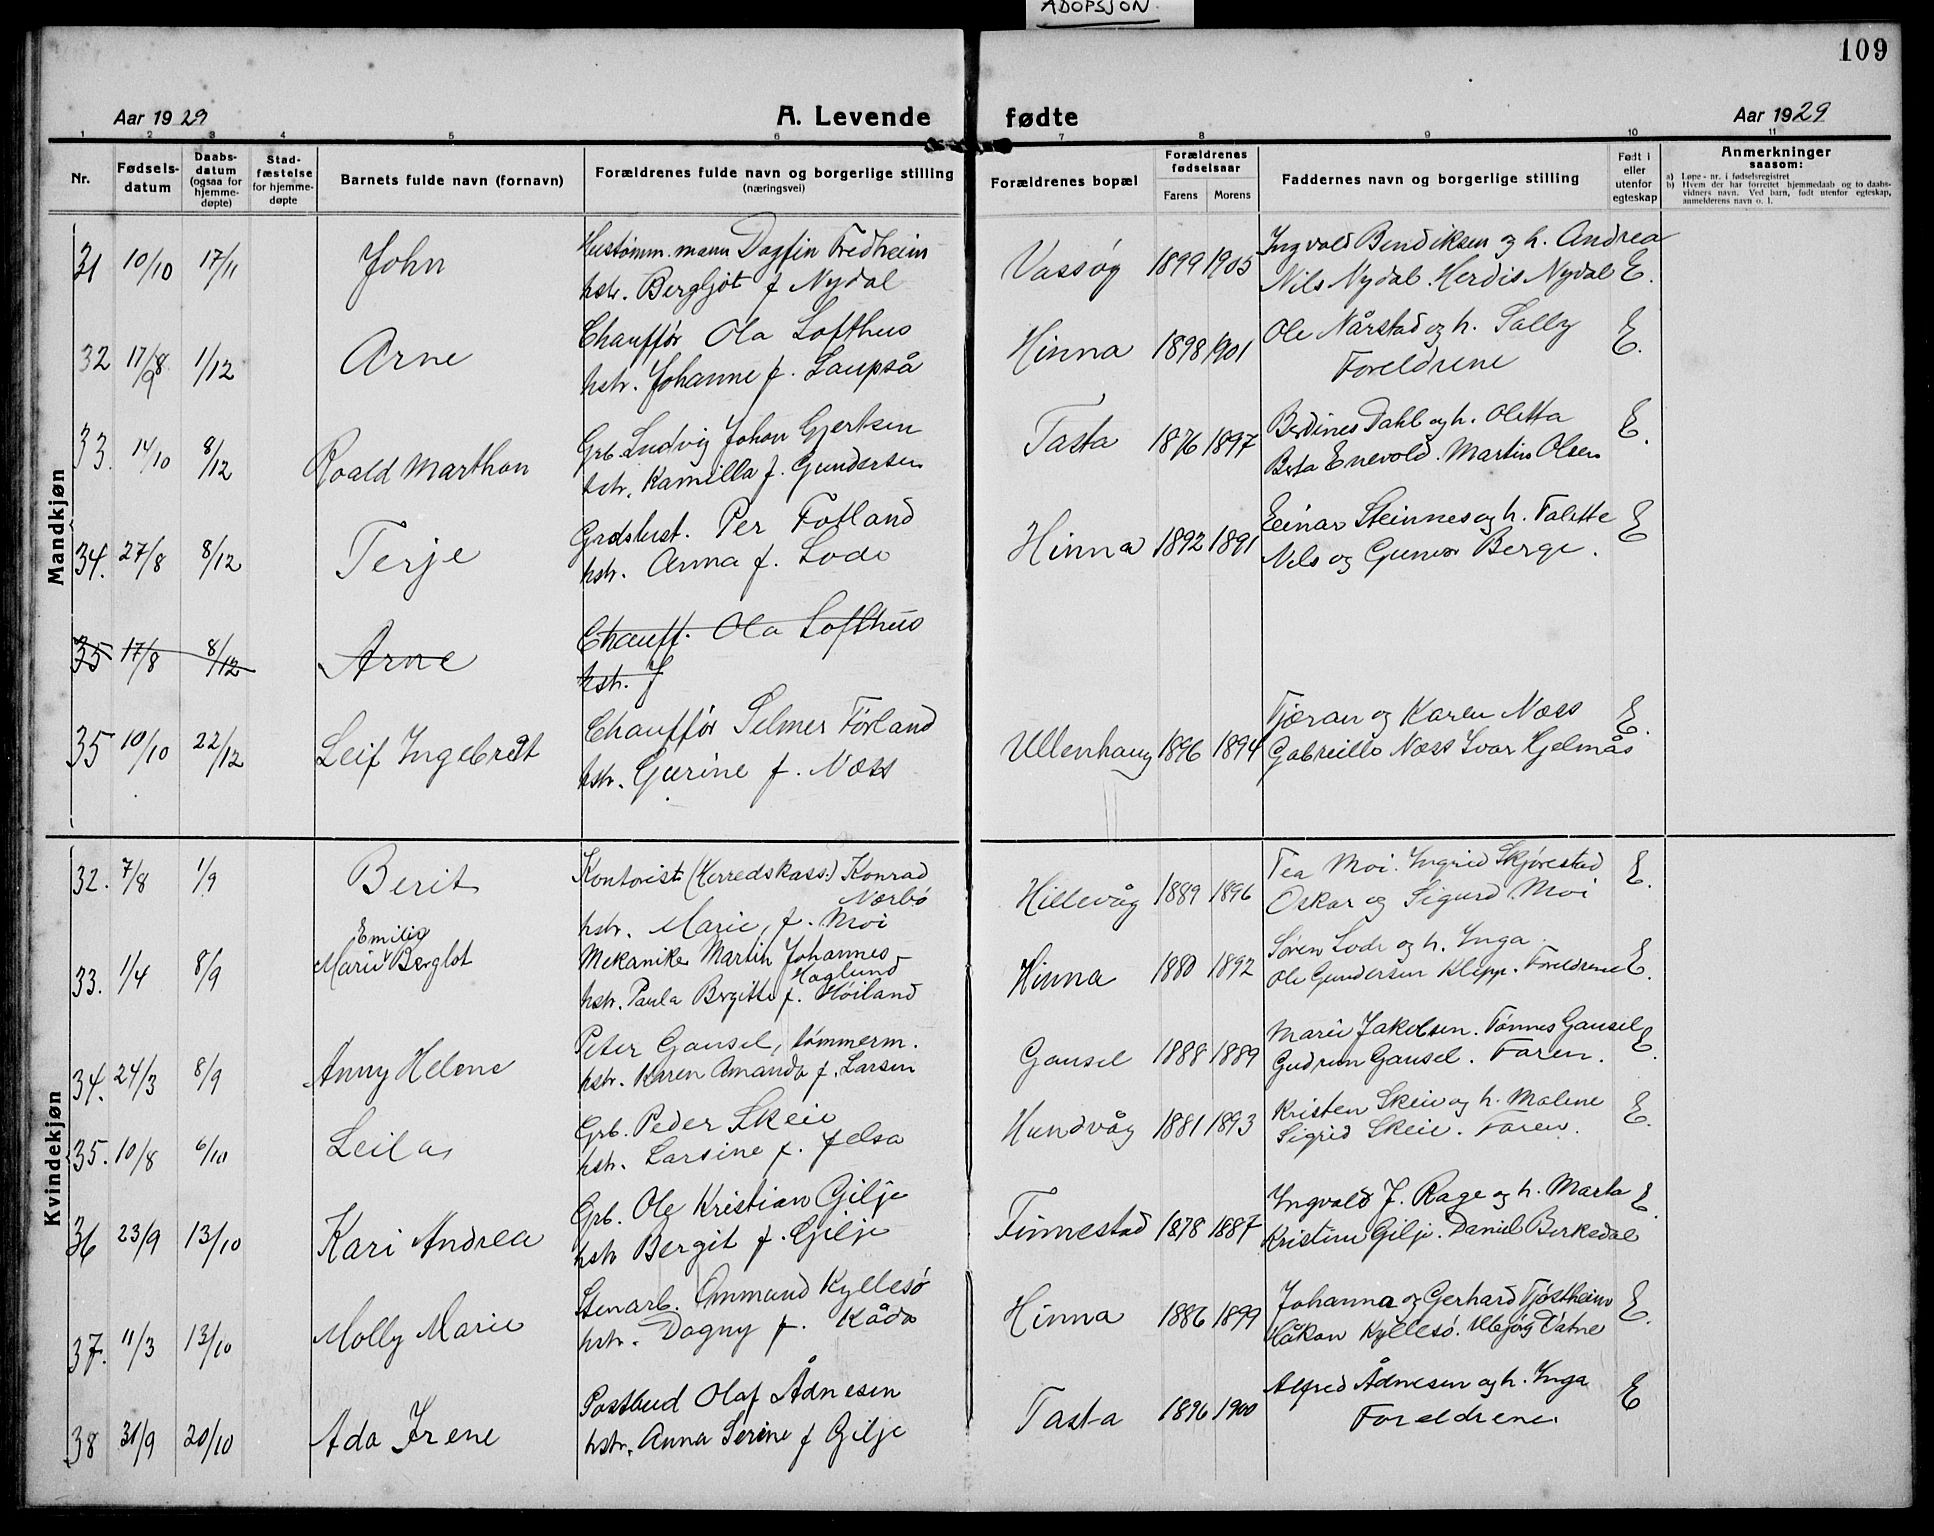 ADOPSJON.
109
Aar 1929 A. Levende fødte Aar 1929
1 2 3 4 5 6 7 8 9 10 11
Nr. Fødsels-datum Daabs-datum (ogsaa for hjemme-døpte) Stad-fæstelse for hjemme-døpte Barnets fulde navn (fornavn) Forældrenes fulde navn og borgerlige stilling (næringsvei) Forældrenes bopæl Forældrenes fødselsaar Farens Morens Faddernes navn og borgerlige stilling Født i eller utenfor egteskap Anmerkninger saasom:
a) Løpe-nr. i fødselsregistret
b) Hvem der har forrettet hjemmedaab og to daabs-vidners navn. Ved barn, født utenfor egteskap, anmelderens navn o. l.
Mandkjøn
31 10/10 17/11 John Hustømm. mann Dagfin Fredheim Vassøy 1899 1905 Ingvald Bendiksen og h. Andrea
hstr. Bergljot f Nydal Nils Nydal. Herdis Nydal E.
32 17/8 9 1/12 Arne Chauffør Ola Lofthus Hinna 1898 1901 Ole Nårstad og h. Sally E.
hstr. Johanne f. Laupså Foreldrene
33. 14/10 8/12 Roald Marthon Grb. Ludvig Johan Gjertsen Tasta 1876 1897 Berdines Dahl og h. Oletta E.
hstr. Kamilla f. Gundersen Berta Enevold. Martin Olsen
34. 27/8 8/12 Terje Grdsbest. Per Fotland Hinna 1892 1891 Einar Steinnes og h. Talette E
hstr. Anna f. Lode Nils og Gunvor Berge.
35 17/8 8/12 Arne Chauff. Ola Lofthus
hstr. J
35 10/10 22/12 Leif Ingebret Chauffør Selmer Førland Ullenhaug 1896 1894 Tjæran og Karen Næss E.
hstr. Gurine f. Næss Gabreille Næss Ivar Hjelmås
Kvindekjøn
32. 7/8 1/9 Berit Kontorist (Herredskass.) Konrad Nærbø Hillevåg 1889 1896 Tea Moi. Ingrid Skjørestad E.
hstr. Marie, f. Moi Oskar og Sigurd Moi
33. 1/4 8/9 Marie Emilie Berglot Mekaniker Martin Johannes Haglund Hinna 1880 1892 Søren Lode og h. Inga.
hstr. Paula Brgitte f. Høiland Ole Gundersen Klepp. Foreldrene E.
34. 24/3 8/9 Anny Helene Peter Gausel, tømmerm. Gausel 1888 1889 Marie Jakobsen. Tønnes Gausel E.
hstr. Karen Amanda f. Larsen Gudrun Gausel. Faren.
35. 10/8 6/10 Leila Grb. Peder Skeie Hundvåg 1881 1893 Kristen Skeie og h. Malene E.
hstr. Larsine f. Jelsa Sigrid Skeie. Faren.
36 23/9 13/10 Kari Andrea Grb. Ole Kristian Gilje Finnestad 1878 1887 Ingvald J. Rage og h. Marta E.
hstr Bergit f. Gilje Kristine Gilje. Daniel Berkedal
37. 11/3 13/10 Molly Marie Stenarb. Ommund Kyllesø Hinna 1886 1899 Johanna og Gerhard Tjøstheim E.
hstr. Dagny f. Kåda Håkon Kyllesø. Ulbjørg Vatne
38 31/9 20/10 Ada Irene Postbud Olaf Ådnesen Tasta 1896 1900 Alfred Ådnesen og h. Inga E
hstr. Anna Serine f Gilje Foreldrene.